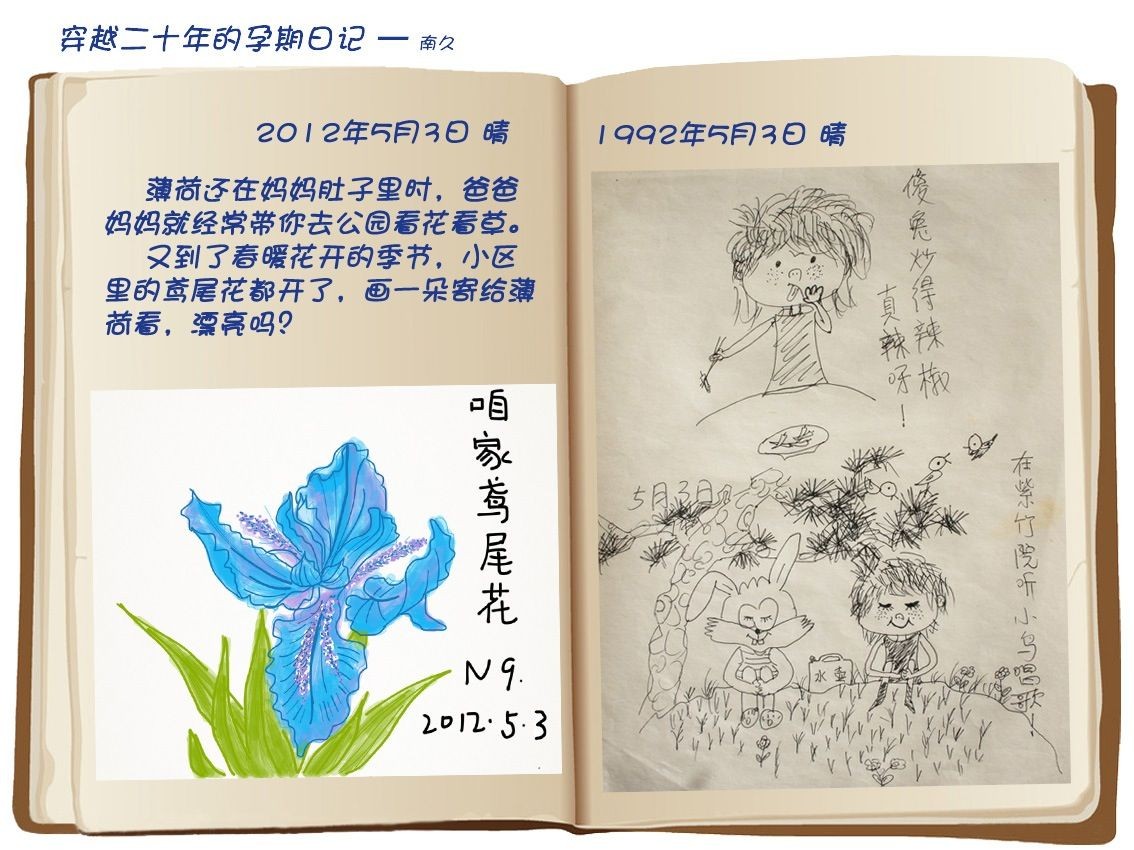 穿越二十年的孕期日记 — 南久
2012年5月3日 晴
薄荷还在妈妈肚子里时，爸爸
妈妈就经常带你去公园看花看草。
又到了春暖花开的季节，小区
里的鸢尾花都开了，画一朵寄给薄
荷看，漂亮吗？
咱家鸢尾花
N9.
2012.5.3
1992年5月3日 晴
傻兔炒得辣椒
真辣呀！
5月3日
在紫竹院听小鸟唱歌！
水壶